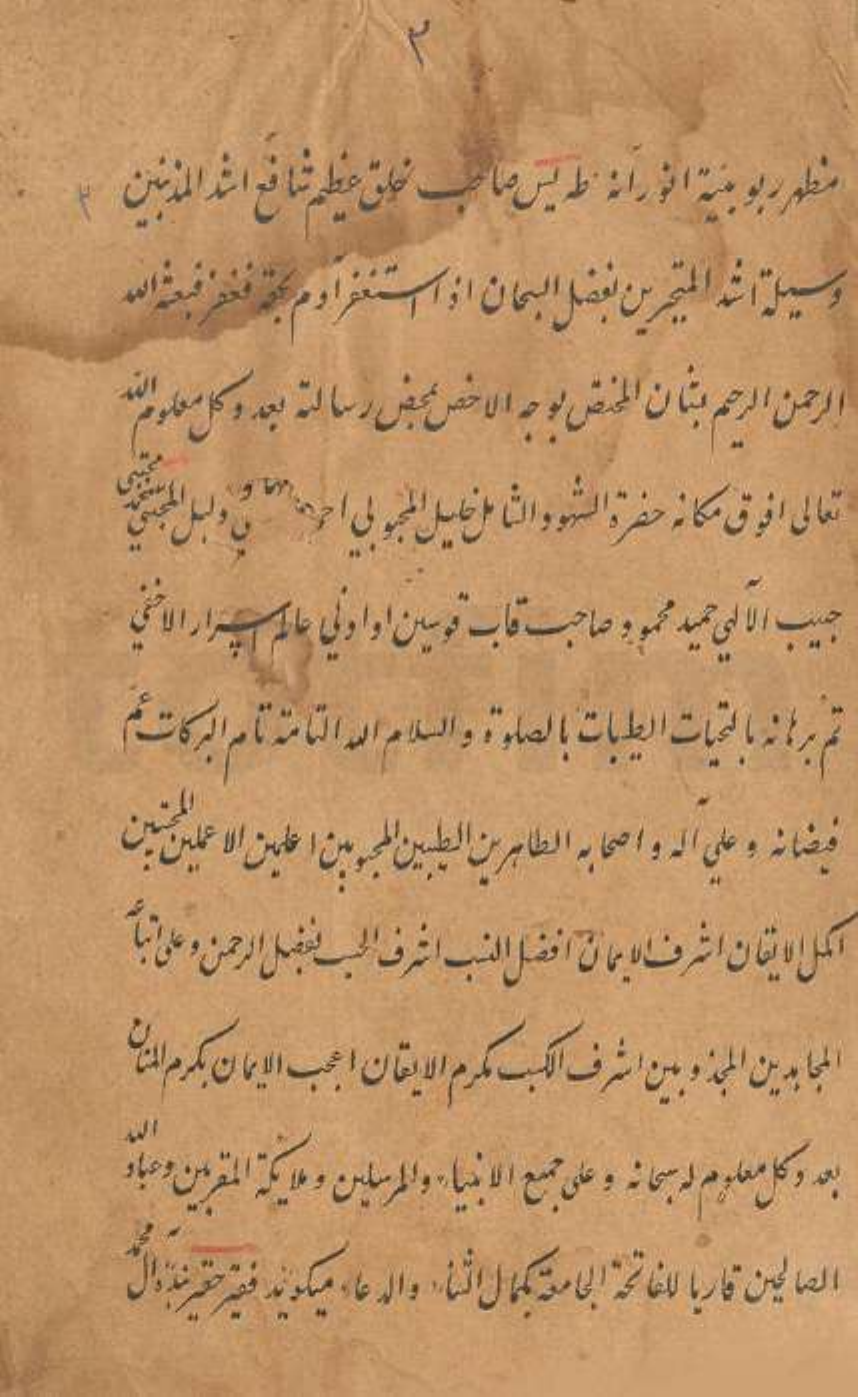 ۳
مظهر ربوبیّة انورآنه طه یس صاحب خلق عظیم شافع اشد المذنبین
۳
وسیلة اشد المتحیرین بفضل السبحان اذا استغفر آدم بحقه فغفر فبعثه الله
الرحمن الرحیم بشان المختص بوجه الاخص بمحض رسالته بعدد کل معلوم الله
تعالی افوق مکانه حضرة الشهود الشامل خلیل المحبوبی دلیل المجتبی
حبیب الآلهی حمید محمود صاحب قاب قوسین او ادنی عالم اسرار الاخفی
تمّ برهانه بالتحیات الطیبات بالصلوة والسلام الله التامة تام البرکات عمّ
فیضانه و علی آله و اصحابه الطاهرین الطیبین المحبوبین اعلمین الاعملین
اکمل الایقان اشرف الایمان افضل النسب اشرف الحسب بفضل الرحمن و علی اتباعه
المجاهدین المجذوبین اشرف الکسب بکرم الایقان اعجب الایمان بکرم المنان
بعدد کل معلوم له سبحانه و علی جمیع الانبیاء والمرسلین و ملایکة المقربین و عباد الله
الصالحین قاریا للفاتحة الجامعة بکمال الثناء والدعاء میکوید فقیر حقیر آل محمّد